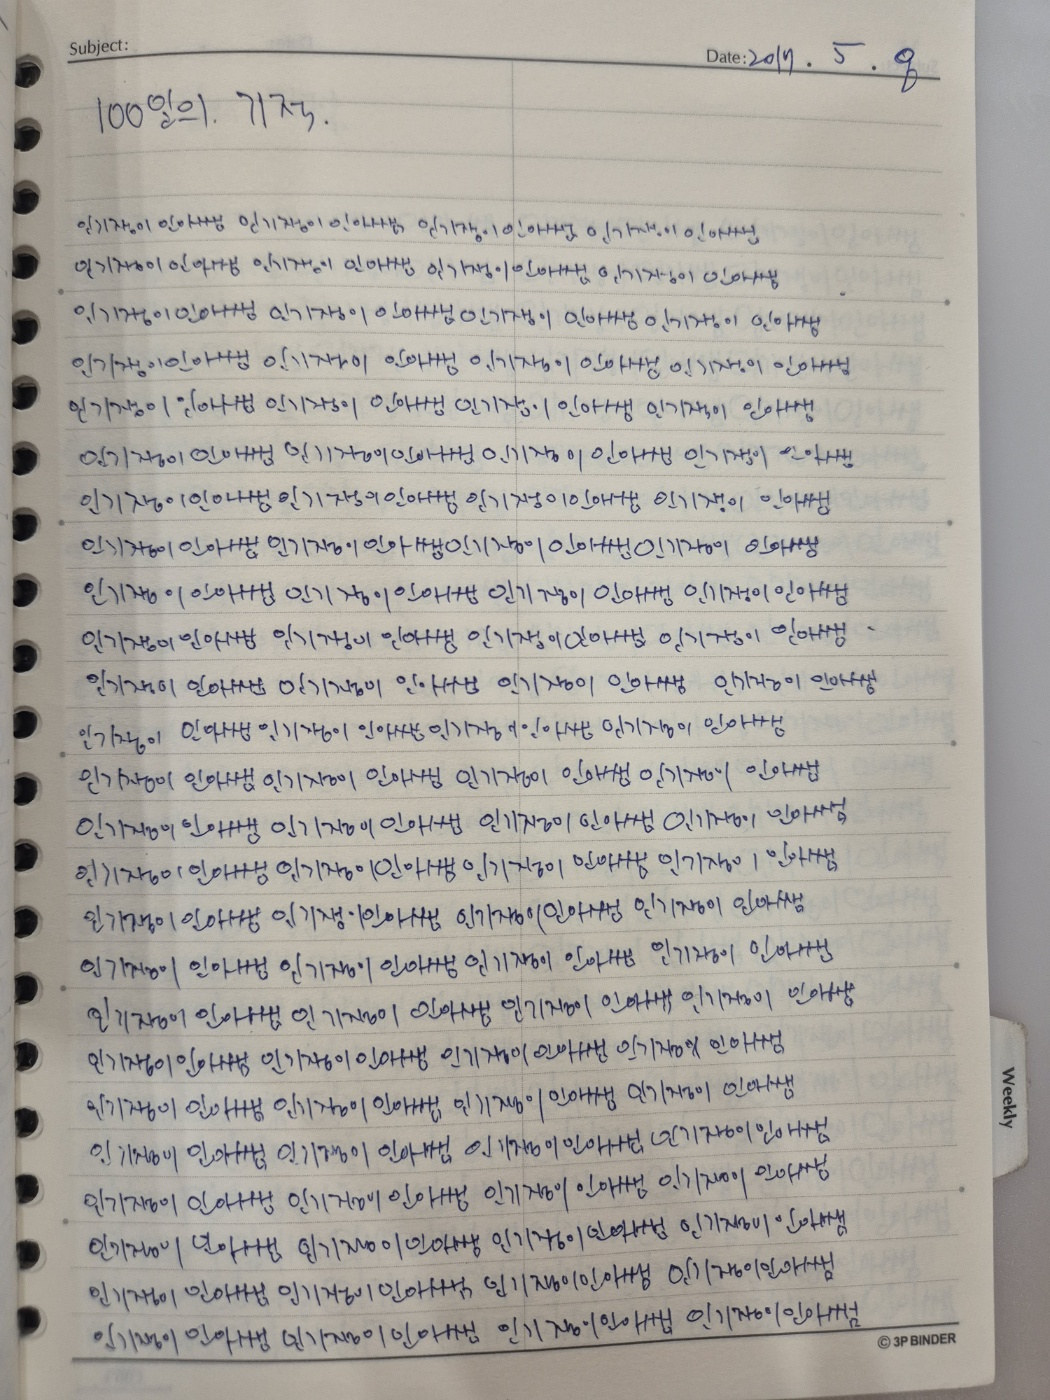 Subject:
Date: 2017. 5. 9
100일의. 기적.
인기쟁이 인아쌤 인기쟁이 인아쌤 인기쟁이 인아쌤 인기쟁이 인아쌤
인기쟁이 인아쌤 인기쟁이 인아쌤 인기쟁이 인아쌤 인기쟁이 인아쌤
인기쟁이 인아쌤 인기쟁이 인아쌤 인기쟁이 인아쌤 인기쟁이 인아쌤
인기쟁이 인아쌤 인기쟁이 인아쌤 인기쟁이 인아쌤 인기쟁이 인아쌤
인기쟁이 인아쌤 인기쟁이 인아쌤 인기쟁이 인아쌤 인기쟁이 인아쌤
인기쟁이 인아쌤 인기쟁이 인아쌤 인기쟁이 인아쌤 인기쟁이 인아쌤
인기쟁이 인아쌤 인기쟁이 인아쌤 인기쟁이 인아쌤 인기쟁이 인아쌤
인기쟁이 인아쌤 인기쟁이 인아쌤 인기쟁이 인아쌤 인기쟁이 인아쌤
인기쟁이 인아쌤 인기쟁이 인아쌤 인기쟁이 인아쌤 인기쟁이 인아쌤
인기쟁이 인아쌤 인기쟁이 인아쌤 인기쟁이 인아쌤 인기쟁이 인아쌤
인기쟁이 인아쌤 인기쟁이 인아쌤 인기쟁이 인아쌤 인기쟁이 인아쌤
인기쟁이 인아쌤 인기쟁이 인아쌤 인기쟁이 인아쌤 인기쟁이 인아쌤
인기쟁이 인아쌤 인기쟁이 인아쌤 인기쟁이 인아쌤 인기쟁이 인아쌤
인기쟁이 인아쌤 인기쟁이 인아쌤 인기쟁이 인아쌤 인기쟁이 인아쌤
인기쟁이 인아쌤 인기쟁이 인아쌤 인기쟁이 인아쌤 인기쟁이 인아쌤
인기쟁이 인아쌤 인기쟁이 인아쌤 인기쟁이 인아쌤 인기쟁이 인아쌤
인기쟁이 인아쌤 인기쟁이 인아쌤 인기쟁이 인아쌤 인기쟁이 인아쌤
인기쟁이 인아쌤 인기쟁이 인아쌤 인기쟁이 인아쌤 인기쟁이 인아쌤
인기쟁이 인아쌤 인기쟁이 인아쌤 인기쟁이 인아쌤 인기쟁이 인아쌤
인기쟁이 인아쌤 인기쟁이 인아쌤 인기쟁이 인아쌤 인기쟁이 인아쌤
인기쟁이 인아쌤 인기쟁이 인아쌤 인기쟁이 인아쌤 인기쟁이 인아쌤
인기쟁이 인아쌤 인기쟁이 인아쌤 인기쟁이 인아쌤 인기쟁이 인아쌤
인기쟁이 인아쌤 인기쟁이 인아쌤 인기쟁이 인아쌤 인기쟁이 인아쌤
인기쟁이 인아쌤 인기쟁이 인아쌤 인기쟁이 인아쌤 인기쟁이 인아쌤
인기쟁이 인아쌤 인기쟁이 인아쌤 인기쟁이 인아쌤 인기쟁이 인아쌤
© 3P BINDER
Weekly